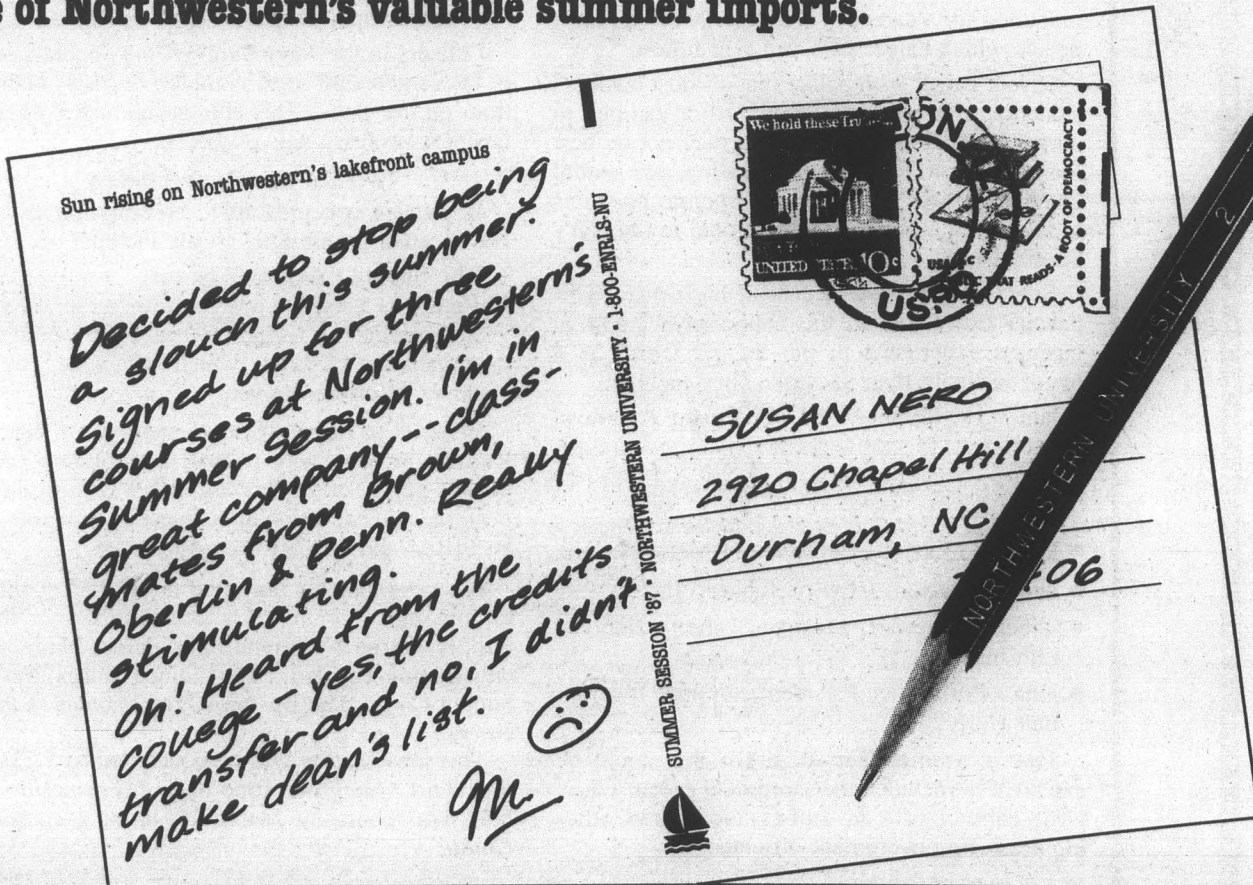 e of Northwestern's valuable summer imports.
Sun rising on Northwestern's lakefront campus
Decided to stop being
a slouch this summer.
Signed up for three
courses at Northwestern's
Summer Session. I'm in
great company--class-
mates from Brown,
Oberlin & Penn. Really
stimulating.
Oh! Heard from the
college - yes, the credits
transfer and no, I didn't
make dean's list.
SUMMER SESSION '87 · NORTHWESTERN UNIVERSITY 1-800-ENRLS-NU
We hold these
UNITED STATES 10c
ON
US
USA
THAT READS - A ROOT OF DEMOCRACY
SUSAN NERO
2920 Chapel Hill
Durham, NC
06
NORTHWESTERN UNIVERSITY 2